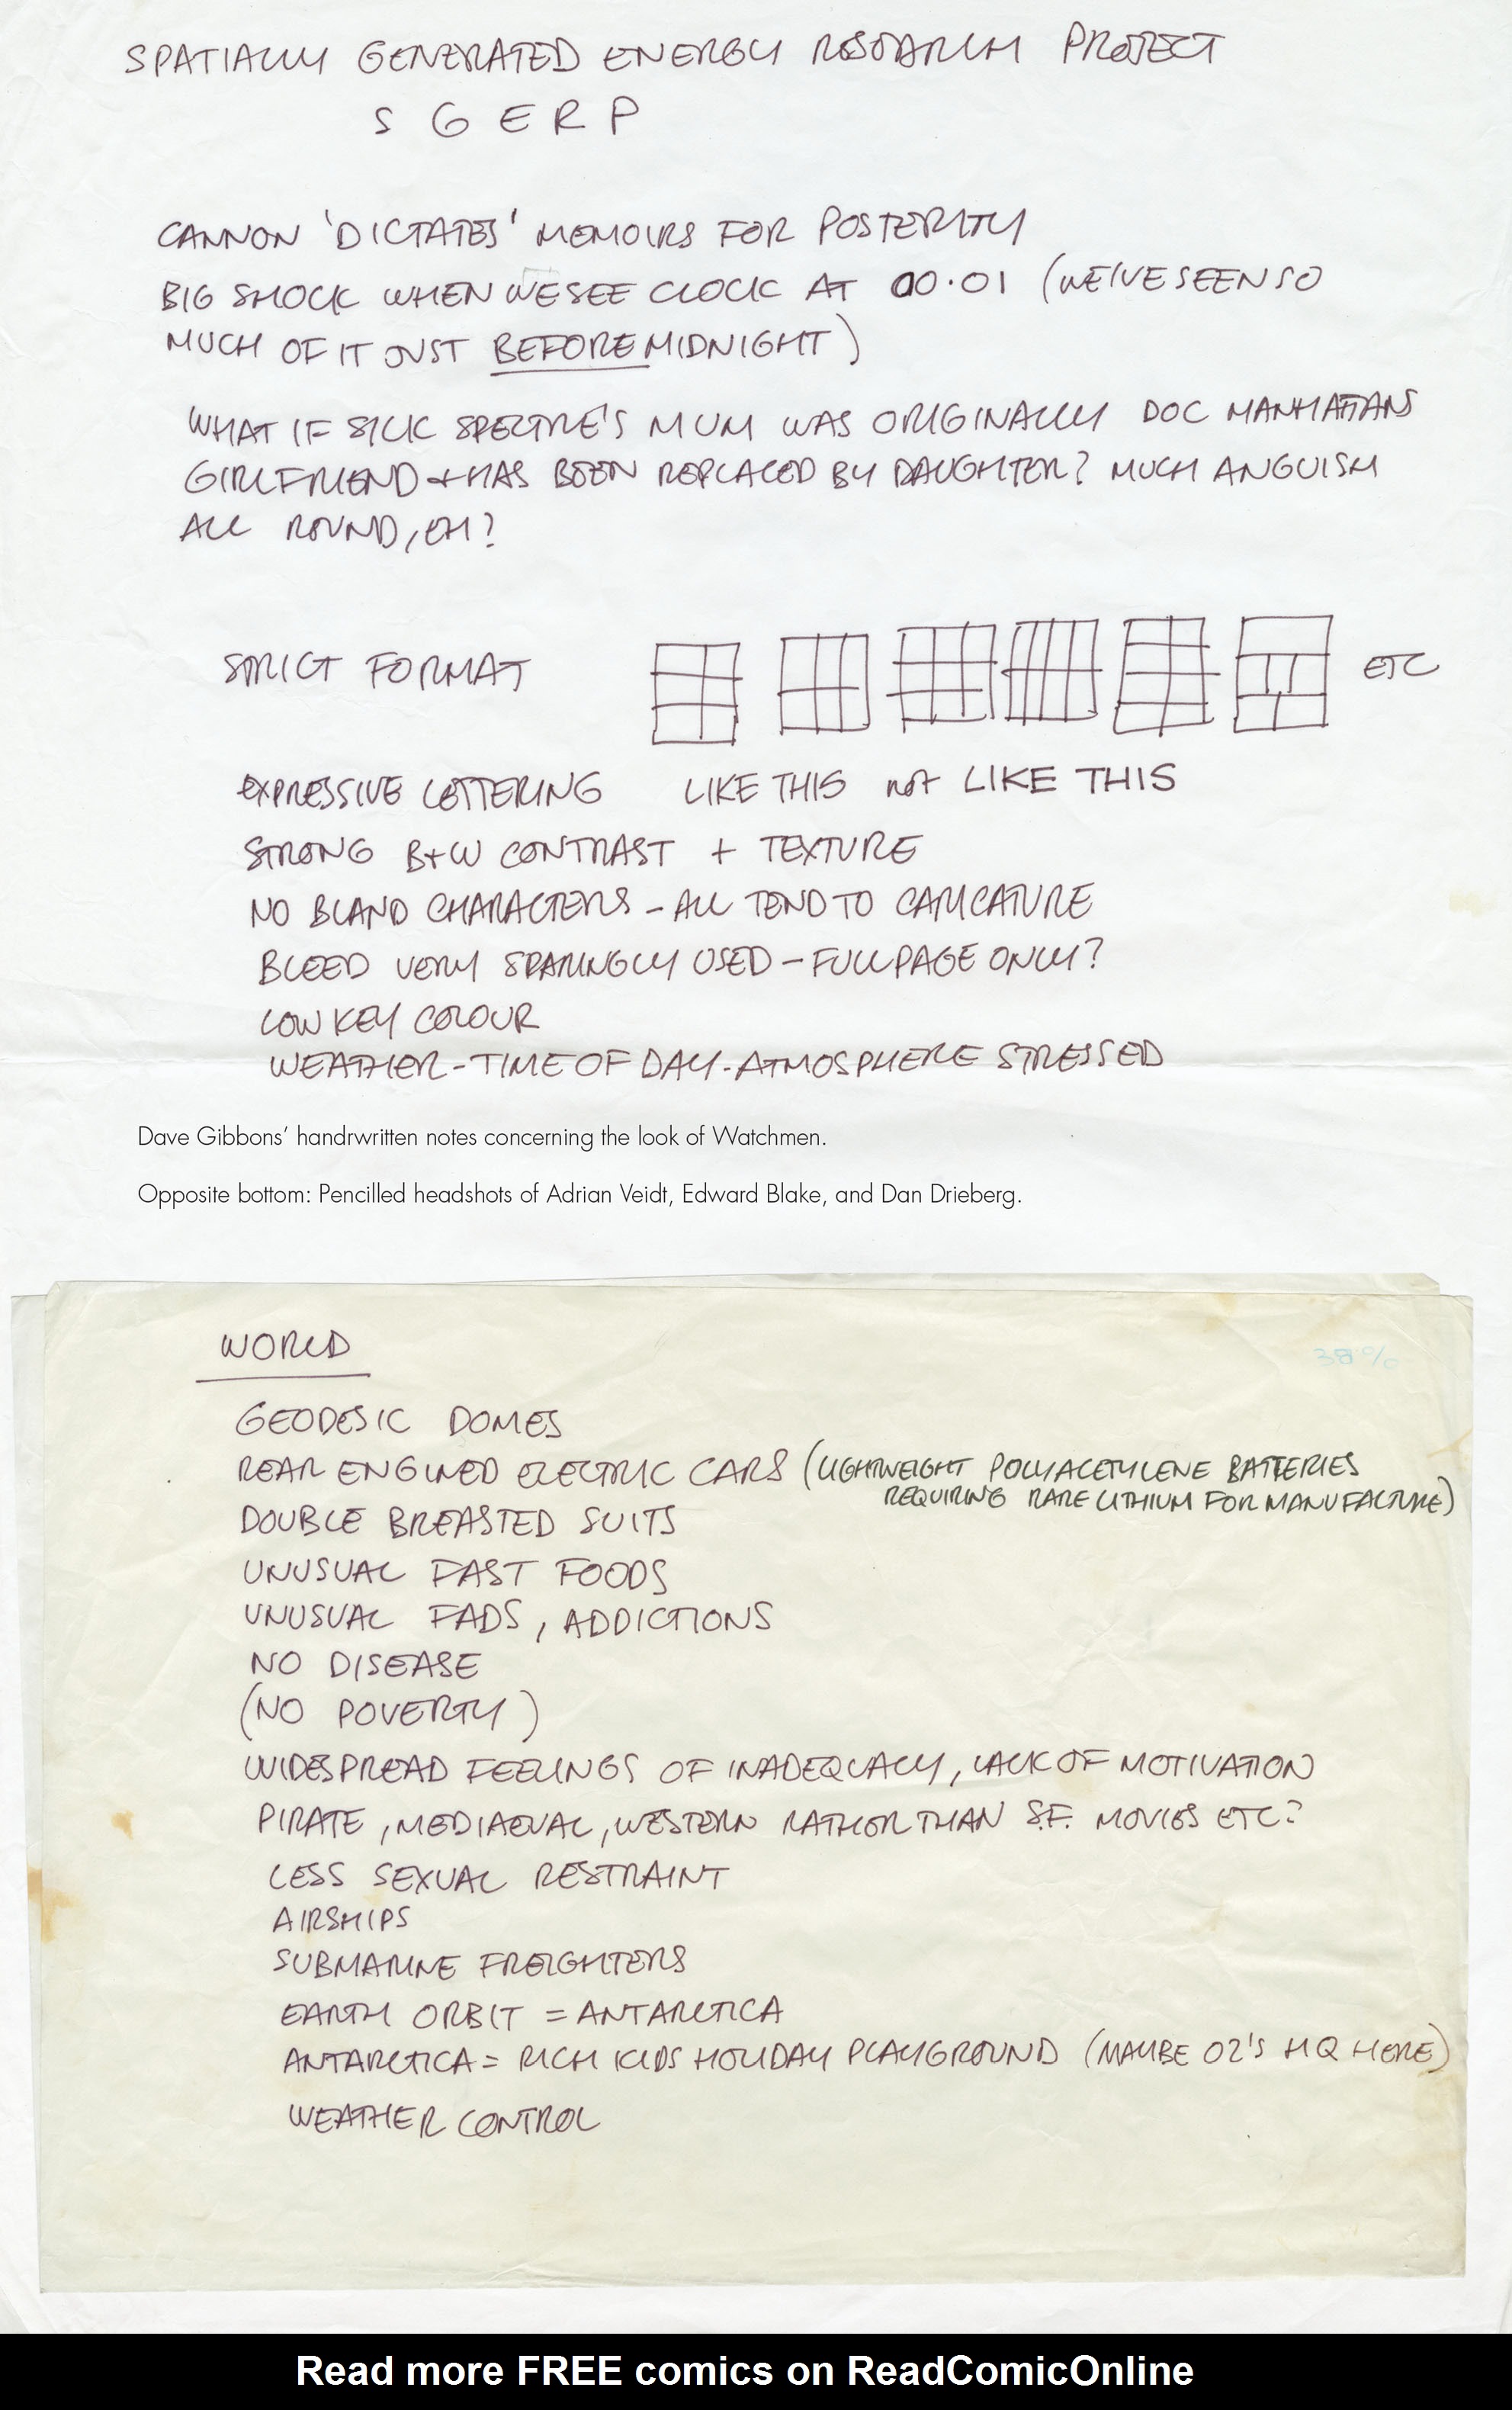 SPATIALLY GENERATED ENERGY RESEARCH PROJECT
S G E R P
CANNON 'DICTATES' MEMOIRS FOR POSTERITY
BIG SHOCK WHEN WE SEE CLOCK AT 00.01 (WE'VE SEEN SO
MUCH OF IT JUST BEFORE MIDNIGHT)
WHAT IF SILK SPECTRE'S MUM WAS ORIGINALLY DOC MANHATTANS
GIRLFRIEND + HAS BEEN REPLACED BY DAUGHTER? MUCH ANGUISH
ALL ROUND, EH?
STRICT FORMAT ETC
EXPRESSIVE LETTERING LIKE THIS not LIKE THIS
STRONG B+W CONTRAST + TEXTURE
NO BLAND CHARACTERS - ALL TEND TO CARICATURE
BLEED VERY SPARINGLY USED - FULL PAGE ONLY?
LOW KEY COLOUR
WEATHER - TIME OF DAY - ATMOSPHERE STRESSED
Dave Gibbons' handrwritten notes concerning the look of Watchmen.
Opposite bottom: Pencilled headshots of Adrian Veidt, Edward Blake, and Dan Drieberg.
WORLD
38%
GEODESIC DOMES
REAR ENGINED ELECTRIC CARS (LIGHTWEIGHT POLYACETYLENE BATTERIES
REQUIRING RARE LITHIUM FOR MANUFACTURE)
DOUBLE BREASTED SUITS
UNUSUAL FAST FOODS
UNUSUAL FADS, ADDICTIONS
NO DISEASE
(NO POVERTY)
WIDESPREAD FEELINGS OF INADEQUACY, LACK OF MOTIVATION
PIRATE, MEDIAEVAL, WESTERN RATHER THAN S.F. MOVIES ETC?
LESS SEXUAL RESTRAINT
AIRSHIPS
SUBMARINE FREIGHTERS
EARTH ORBIT = ANTARCTICA
ANTARCTICA = RICH KIDS HOLIDAY PLAYGROUND (MAYBE OZ'S HQ HERE)
WEATHER CONTROL
Read more FREE comics on ReadComicOnline